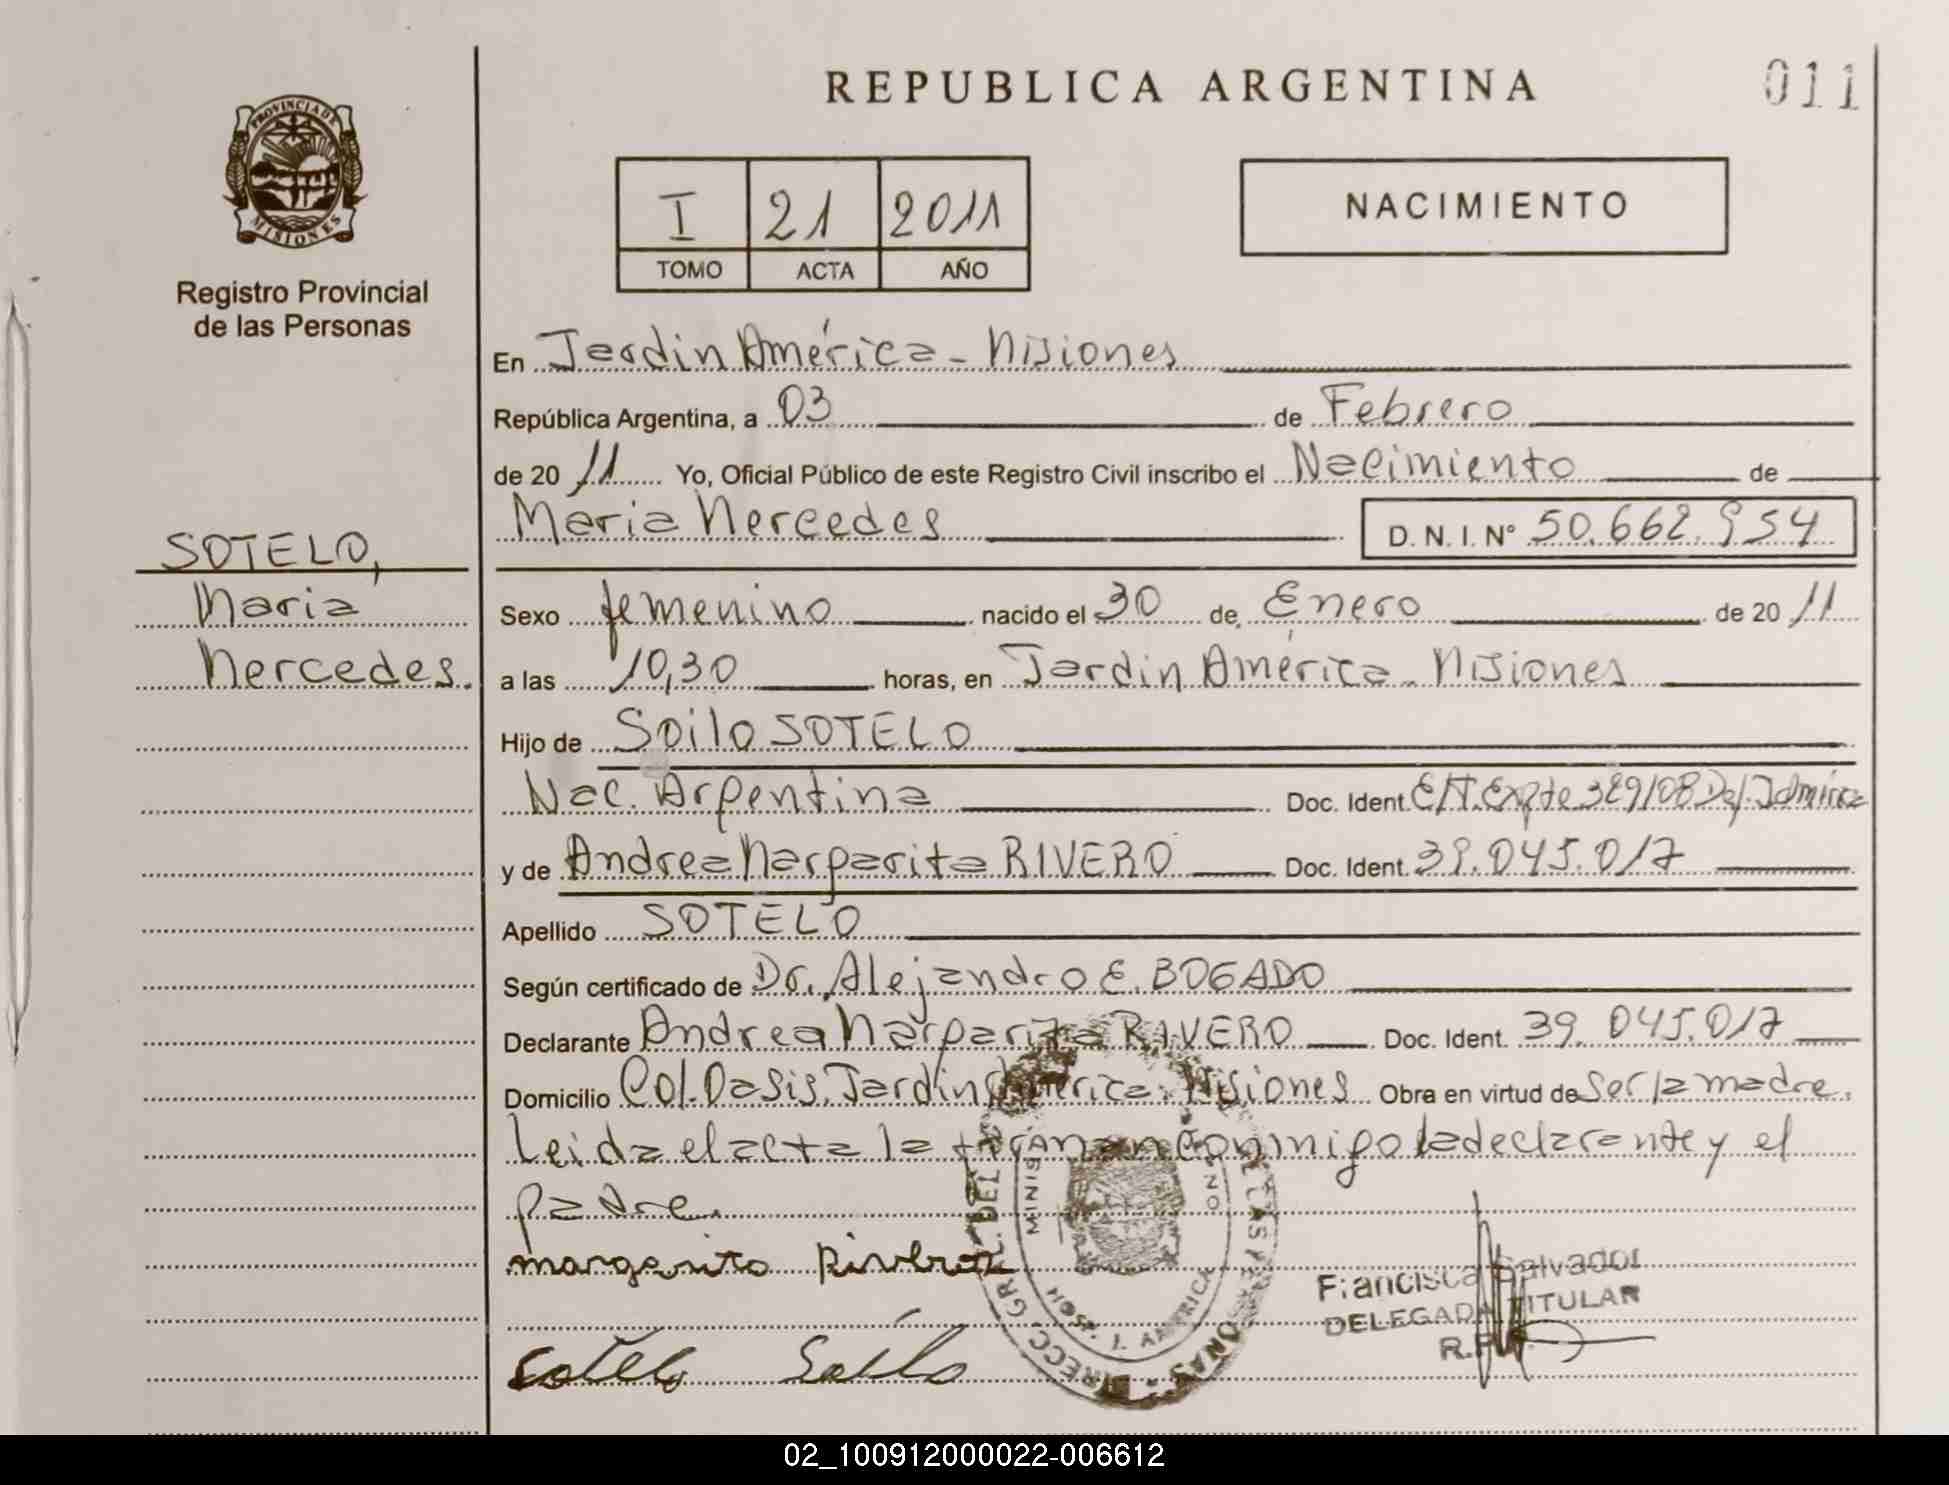 REPUBLICA ARGENTINA
011
PROVINCIA DE
MISIONES
Registro Provincial
de las Personas
I 21 2011
TOMO ACTA AÑO
NACIMIENTO
SOTELO,
Maria
Mercedes.
En Jardin América - Misiones
República Argentina, a 03 de Febrero
de 20 11 Yo, Oficial Público de este Registro Civil inscribo el Nacimiento de
Maria Mercedes D. N. I. N° 50.662.954
Sexo femenino nacido el 30 de Enero de 20 11
a las 10,30 horas, en Jardin América - Misiones
Hijo de Soilo SOTELO
Nac. Argentina Doc. Ident. Expte 389/08
y de Andrea Margarita RIVERO Doc. Ident. 39.045.017
Apellido SOTELO
Según certificado de Dr. Alejandro E. BOGADO
Declarante Andrea Margarita RIVERO Doc. Ident. 39.045.017
Domicilio Col. Oasis. Jardin América - Misiones Obra en virtud de Ser la madre.
Leida el acta la firman conmigo la declarante y el
padre.
margarita Rivero
Sotelo Soilo
Francisca Salvador
DELEGADA TITULAR
R.P.
02_100912000022-006612